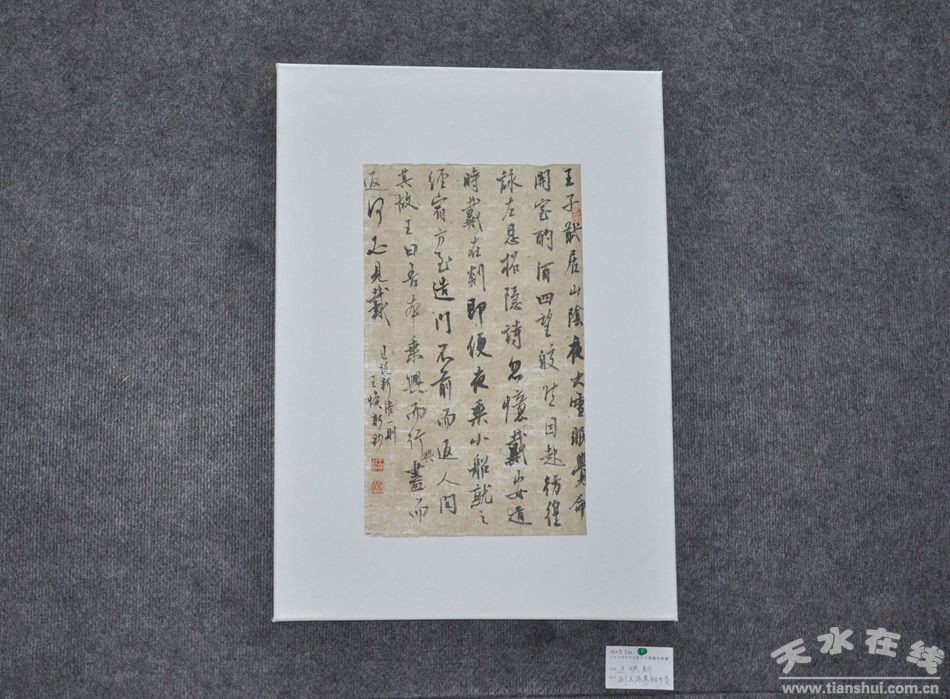 王子猷居山陰夜大雪眠覺命
開室酌酒四望皎然因起彷徨
詠左思招隱詩忽憶戴安道
時戴在剡即便夜乘小船就之
經宿方至造門不前而返人問
其故王曰吾本乘興而行興盡而
返何必見戴
世説新語一則
王焕新
天水在线
www.tianshui.com.cn